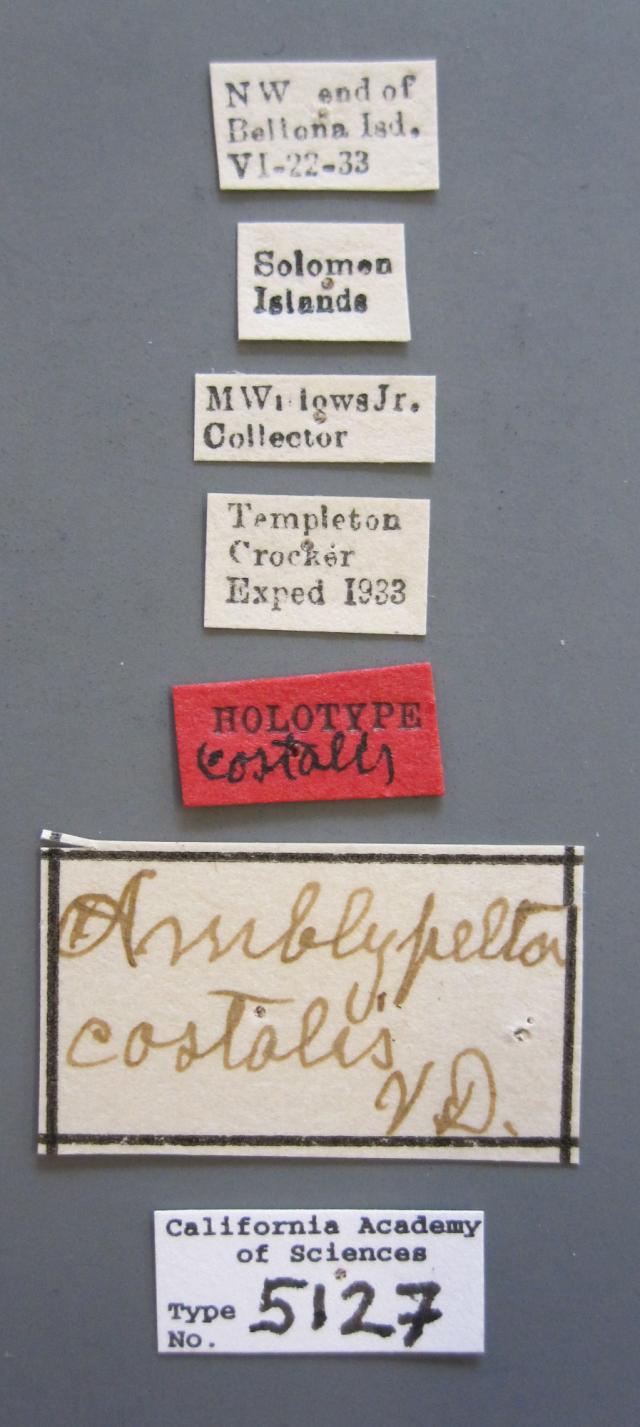 NW end of
Bellona Isd.
VI-22-33
Solomon
Islands
M Willows Jr.
Collector
Templeton
Crocker
Exped 1933
HOLOTYPE
costalis
Amblypelta
costalis
V.D.
California Academy
of Sciences
Type
No. 5127